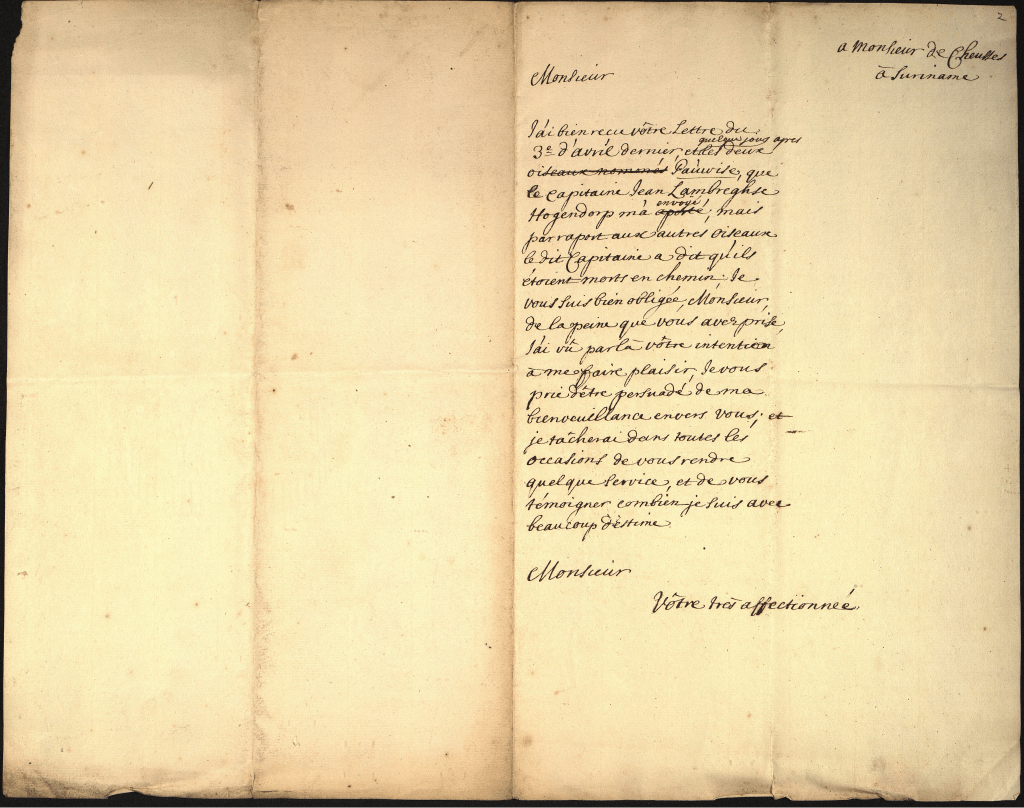 2
a Monsieur de Cheusses
à Suriname
Monsieur
J'ai bien recu vôtre Lettre du
quelque jours apres
3e d'avril dernier et les deux
oiseaux nomenés Paùwise, que
le Capitaine Jean Lambreghse
envoyé
Hogendorp m'a aporté; mais
par raport aux autres oiseaux
le dit Capitaine a dit qu'ils
étoient morts en chemin. Je
vous suis bien obligée, Monsieur,
de la peine que vous avez prise,
J'ai vû par là vôtre intention
a me faire plaisir, Je vous
prie d'être persuadé de ma
bienveuillance envers vous; et
je tâcherai dans toutes les
occasions de vous rendre
quelque service, et de vous
témoigner combien je suis avec
beaucoup d'éstime
Monsieur
Vôtre très affectionnée